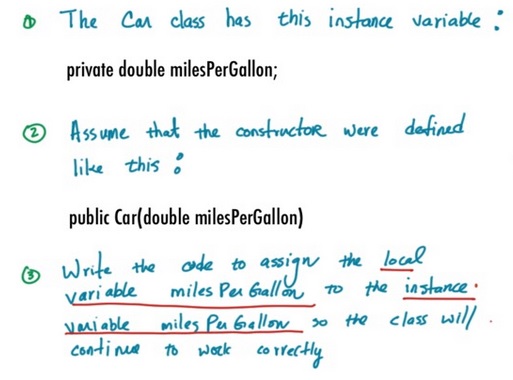 ① The Car class has this instance variable :
private double milesPerGallon;
② Assume that the constructor were defined
like this :
public Car(double milesPerGallon)
③ Write the code to assign the local
variable miles Per Gallon to the instance
variable miles Per Gallon so the class will
continue to work correctly